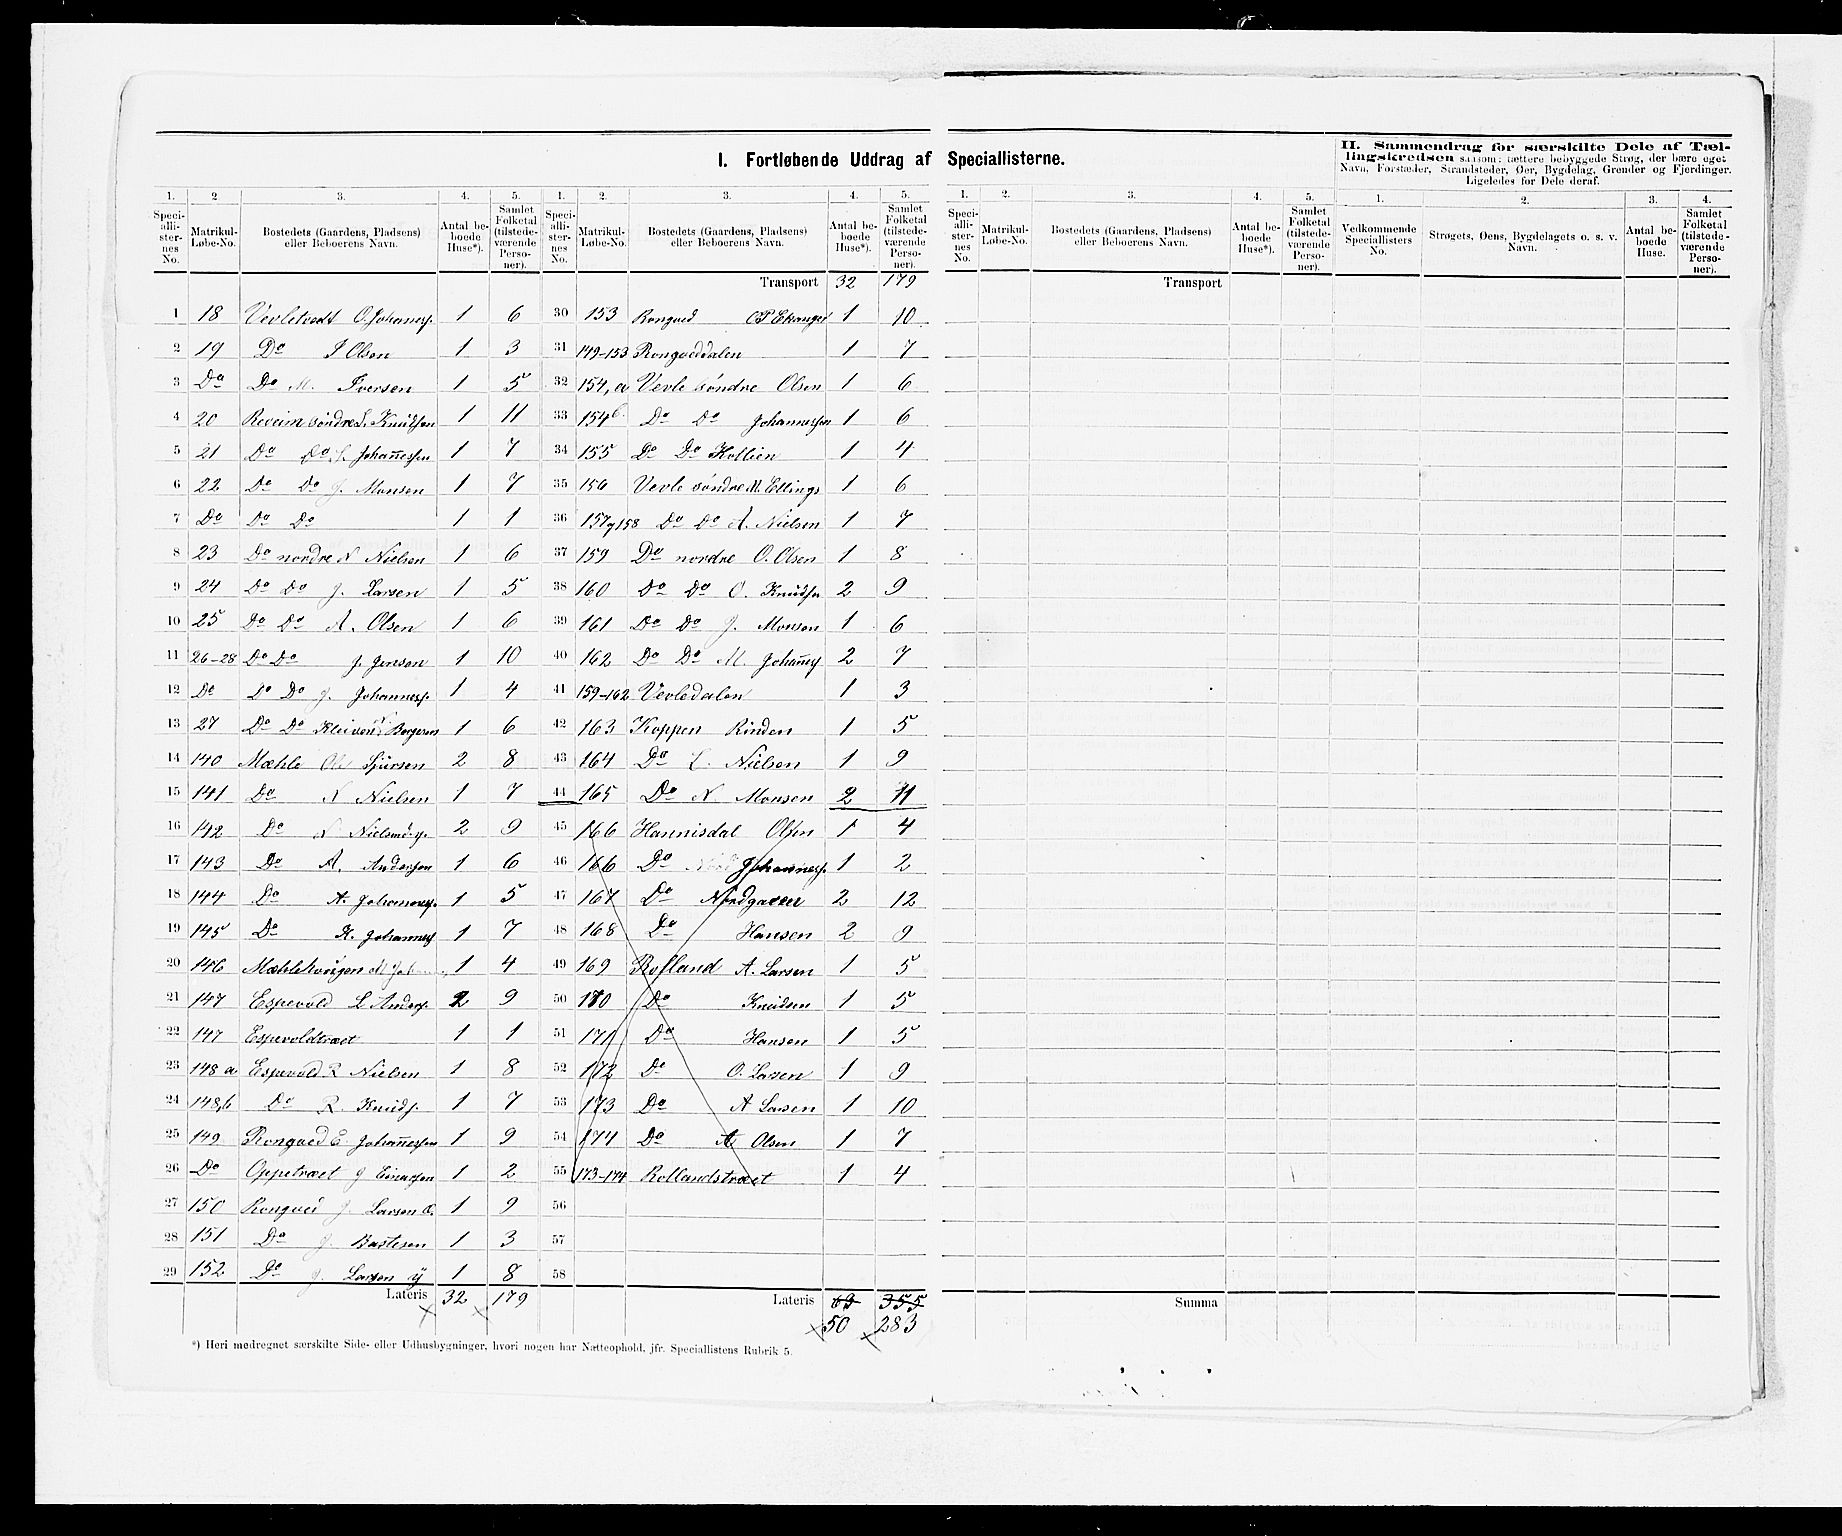 I. Fortløbende Uddrag af Speciallisterne.
II. Sammendrag for særskilte Dele af Tæl-
lingskredsen saasom: tættere bebyggede Strøg, der bære eget
Navn, Forstæder, Strandsteder, Øer, Bygdelag, Grender og Fjerdinger.
Ligeledes for Dele deraf.
1. 2. 3. 4. 5. 1. 2. 3. 4. 5. 1. 2. 3. 4. 5. 1. 2. 3. 4.
Speciallisternes No. Matrikul-Løbe-No. Bostedets (Gaardens, Pladsens) eller Beboerens Navn. Antal beboede Huse*). Samlet Folketal (tilstedeværende Personer).
Speciallisternes No. Matrikul-Løbe-No. Bostedets (Gaardens, Pladsens) eller Beboerens Navn. Antal beboede Huse*). Samlet Folketal (tilstedeværende Personer).
Speciallisternes No. Matrikul-Løbe-No. Bostedets (Gaardens, Pladsens) eller Beboerens Navn. Antal beboede Huse*). Samlet Folketal (tilstedeværende Personer).
Vedkommende Speciallisters No. Strøgets, Øens, Bygdelagets o. s. v. Navn. Antal beboede Huse. Samlet Folketal (tilstedeværende Personer).
Transport 32 179
Transport
1 18 Vevletvedt O. Johannesp. 1 6
2 19 Do I Olsen 1 3
3 Do Do M. Iversen 1 5
4 20 Reveim søndre L. Knudsen 1 11
5 21 Do Do L. Johannessen 1 7
6 22 Do Do J. Monsen 1 7
7 Do Do Do 1 1
8 23 Do nordre N Nielsen 1 6
9 24 Do Do J. Larsen 1 5
10 25 Do Do A. Olsen 1 6
11 26-28 Do Do J. Jensen 1 10
12 Do Do Do J. Johannesp. 1 4
13 27 Do Do Kleiven Borgersen 1 6
14 140 Mæhle Ole Sjursen 2 8
15 141 Do N Nielsen 1 7
16 142 Do N Nielsen d. y. 2 9
17 143 Do A. Andersen 1 6
18 144 Do A. Johannesp. 1 5
19 145 Do K. Johannesp 1 7
20 146 Mæhlehougen M Joh 1 4
21 147 Espevold L Andersp. 2 9
22 147 Espevoldtræet 1 1
23 148 a Espevold R Nielsen 1 8
24 148,b Do R. Knudsp. 1 7
25 149 Rongved E Johannessen 1 9
26 Do Oppetræet J Einarsen 1 2
27 150 Rongved J. Larsen Æ. 1 9
28 151 Do J. Bastesen 1 3
29 152 Do J. Larsen y 1 8
Lateris 32 179
30 153 Rongved O P Ekanger 1 10
31 149-153 Rongveddalen 1 7
32 154, a Vevle søndre Olsen 1 6
33 154 b. Do Do Johannessen 1 6
34 155 Do Do Kollien 1 4
35 156 Vevle søndre M. Ellings 1 6
36 157 g 158 Do Do A. Nielsen 1 7
37 159 Do nordre O. Olsen 1 8
38 160 Do Do O. Knudsen 2 9
39 161 Do Do J. Monsen 1 6
40 162 Do Do M. Johannesp 2 7
41 159-162 Vevledalen 1 3
42 163 Koppen Rinden 1 5
43 164 Do L. Nielsen 1 9
44 165 Do N. Monsen 2 11
45 166 Hannisdal Olsen 1 4
46 166 Do Johannesp. 1 2
47 167 Do Nordgaarer 2 12
48 168 Do Hansen 2 9
49 169 Rolland A. Larsen 1 5
50 170 Do Knudsen 1 5
51 171 Do Hansen 1 5
52 172 Do O. Larsen 1 9
53 173 Do A Larsen 1 10
54 174 Do A. Olsen 1 7
55 173-174 Rollandstræet 1 4
56
57
58
Lateris 63 355
50 283
Summa
*) Heri medregnet særskilte Side- eller Udhusbygninger, hvori nogen har Natteophold, jfr. Speciallistens Rubrik 5.